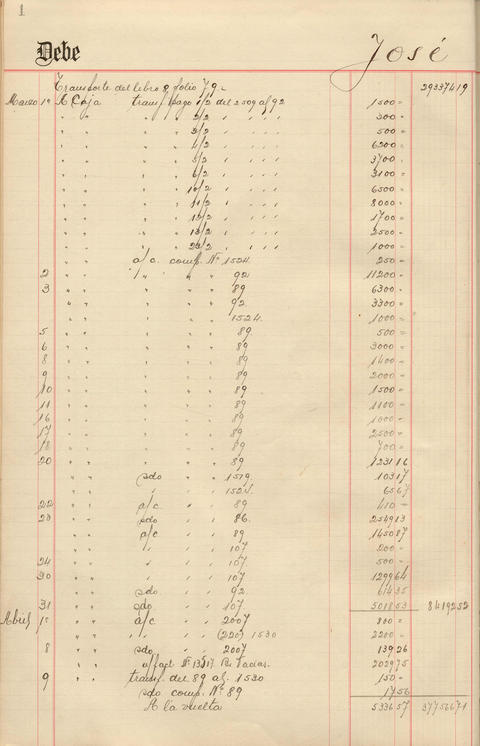 1
Debe José
Transporte del libro 8 folio 79. 29337419
Marzo 1º A Caja transf pago 1/2 del 2509 af 92 1500 =
" " " 2/2 " " " " 300 =
" " " 2/2 " " " " 500 =
" " " 4/2 " " " " 6200 =
" " " 5/2 " " " " 3700 =
" " " 6/2 " " " " 3100 =
" " " 10/2 " " " " 6500 =
" " " 11/2 " " " " 8000 =
" " " 12/2 " " " " 1700 =
" " " 13/2 " " " " 2500 =
" " " 23/2 " " " " 1000 =
" " a/c. comp. Nº 1524. 250 =
2 " " " " " 92 11200 =
3 " " " " " 89 6300 =
" " " " " 92. 3300 =
" " " " " 1524. 1000 =
5 " " " " " 89. 500 =
6 " " " " " 89 3000 =
8 " " " " " 89 1400 =
9 " " " " " 89 2000 =
10 " " " " " 89 1500 =
11 " " " " " 89 1100 =
16 " " " " " 89 1000 =
17 " " " " " 89 2500 =
18 " " " " " 89 700 =
20 " " " " " 89 123116
" " sdo " " 1519. 10317
" " " " " 1524. 6567
22 " " a/c " " 89 410 =
23 " " sdo " " 86. 254913
" " a/c " " 89 145087
" " " " " 107 200 =
24 " " " " " 107. 500 =
30 " " " " " 107 129964
" " sdo " " 92. 61435
31 " " sdo " " 107. 501853 8419252
Abril 1º " " a/c " " 2007 800 =
" " " " " (220) 1530 2200 =
8 " " sdo " " 2007 13926
" " a/fact Nº 13517 202975
9 " " transf. del 89 af. 1530 150 =
sdo comp. Nº 89 1756
A la vuelta 533657 37756671